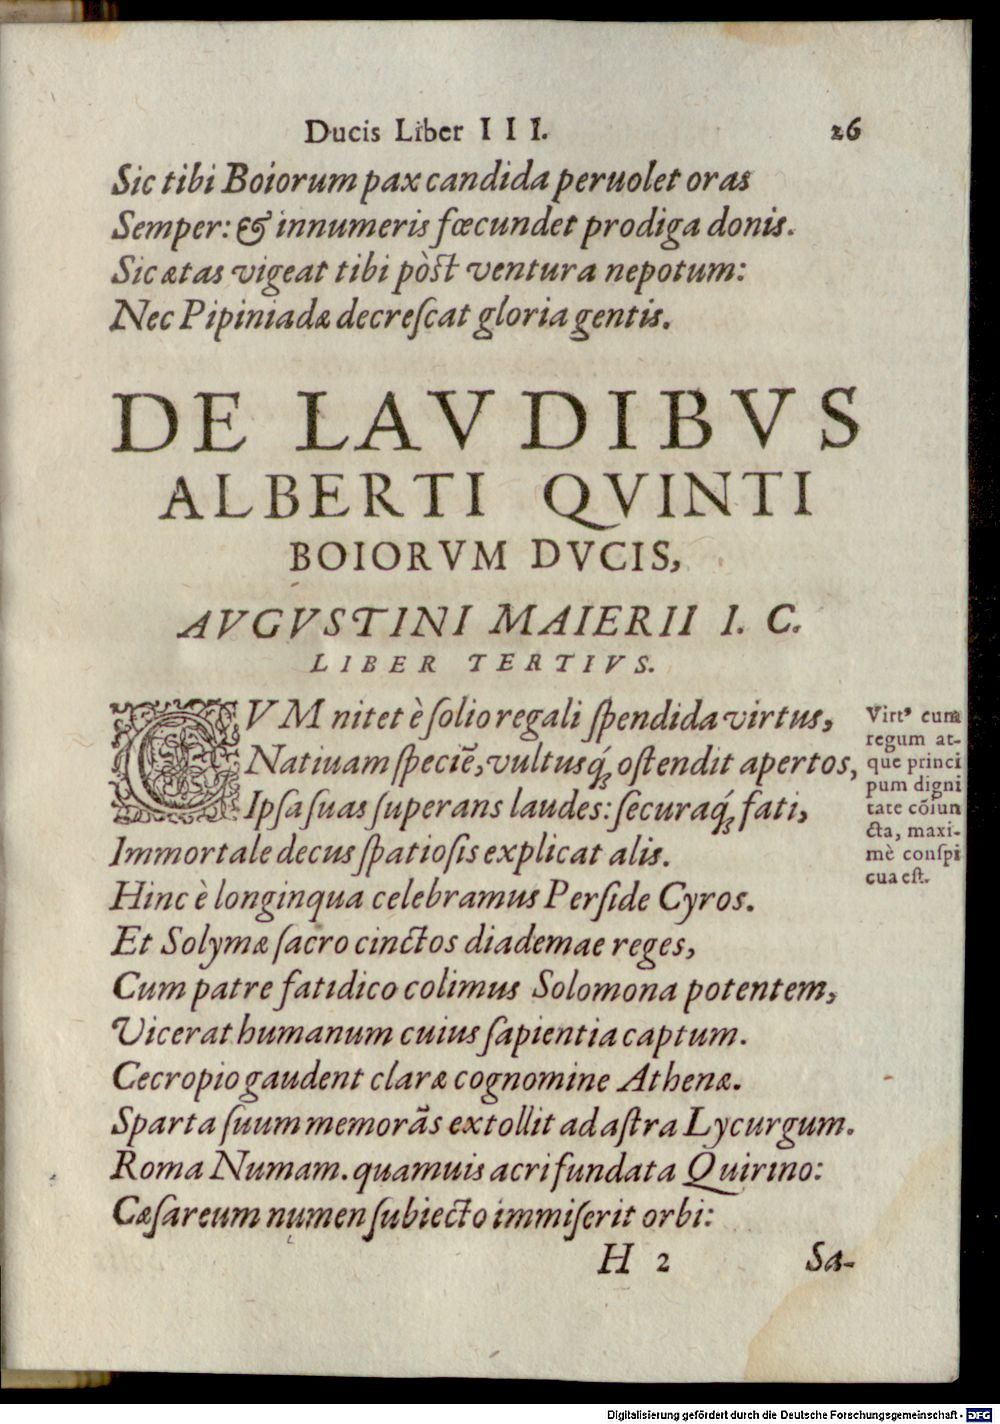 Ducis Liber III. 26
Sic tibi Boiorum pax candida peruolet oras
Semper: & innumeris fœcundet prodiga donis.
Sic ætas vigeat tibi pòst ventura nepotum:
Nec Pipiniadæ decreſcat gloria gentis.
DE LAVDIBVS
ALBERTI QVINTI
BOIORVM DVCIS,
AVGVSTINI MAIERII I. C.
LIBER TERTIVS.
CVM nitet è ſolio regali ſpendida virtus,
Natiuam ſpeciē, vultusq́ꝫ oſtendit apertos,
Ipſa ſuas ſuperans laudes: ſecuraq́ꝫ fati,
Immortale decus ſpatioſis explicat alis.
Hinc è longinqua celebramus Perſide Cyros.
Et Solymæ ſacro cinctos diademae reges,
Cum patre fatidico colimus Solomona potentem,
Vicerat humanum cuius ſapientia captum.
Cecropio gaudent claræ cognomine Athenæ.
Sparta ſuum memorãs extollit ad aſtra Lycurgum.
Roma Numam. quamuis acri fundata Quirino:
Cæſareum numen ſubiecto immiſerit orbi:
H 2 Sa-
Virtꝰ cum
regum at-
que princi
pum digni
tate cõiun
cta, maxi-
mè conſpi
cua eſt.
Digitalisierung gefördert durch die Deutsche Forschungsgemeinschaft - DFG